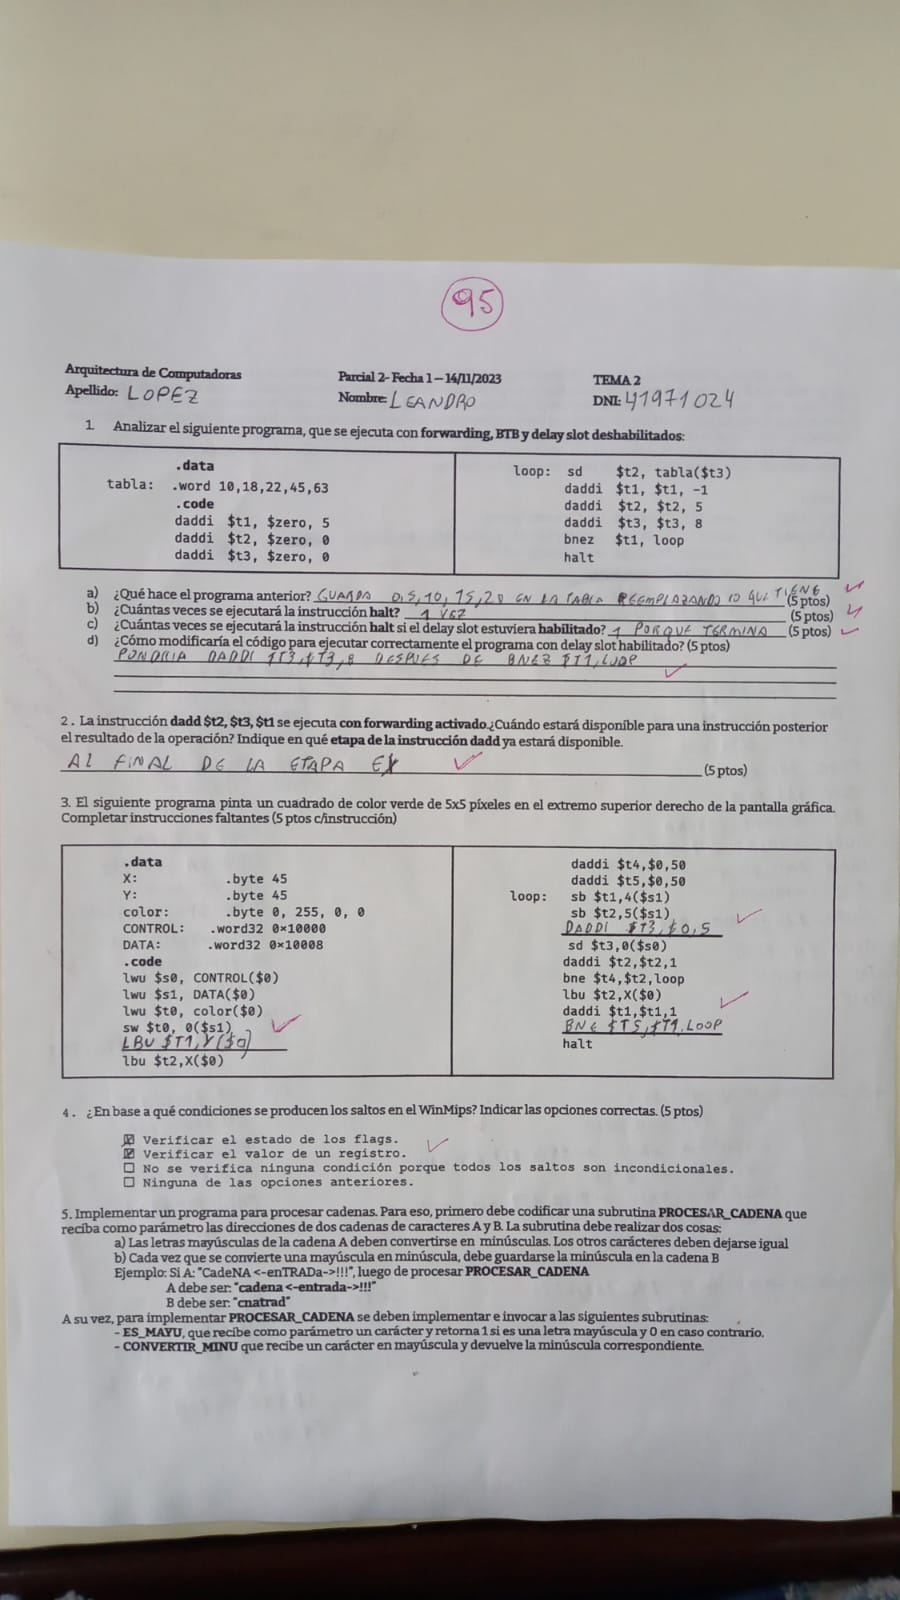 95
Arquitectura de Computadoras Parcial 2- Fecha 1 – 14/11/2023 TEMA 2
Apellido: LOPEZ Nombre: LEANDRO DNI: 41971024
1. Analizar el siguiente programa, que se ejecuta con forwarding, BTB y delay slot deshabilitados:
.data
tabla: .word 10,18,22,45,63
.code
daddi $t1, $zero, 5
daddi $t2, $zero, 0
daddi $t3, $zero, 0
loop: sd $t2, tabla($t3)
daddi $t1, $t1, -1
daddi $t2, $t2, 5
daddi $t3, $t3, 8
bnez $t1, loop
halt
a) ¿Qué hace el programa anterior? GUARDA 0,5,10,15,20 EN LA TABLA REEMPLAZANDO lo QUE TIENE (5 ptos)
b) ¿Cuántas veces se ejecutará la instrucción halt? 1 VEZ (5 ptos)
c) ¿Cuántas veces se ejecutará la instrucción halt si el delay slot estuviera habilitado? 1 PORQUE TERMINA (5 ptos)
d) ¿Cómo modificaría el código para ejecutar correctamente el programa con delay slot habilitado? (5 ptos)
PONDRIA DADDI $T3,$T3,8 DESPUES DE BNEZ $T1,LOOP
2 . La instrucción dadd $t2, $t3, $t1 se ejecuta con forwarding activado.¿Cuándo estará disponible para una instrucción posterior
el resultado de la operación? Indique en qué etapa de la instrucción dadd ya estará disponible.
Al FINAL DE LA ETAPA EX (5 ptos)
3. El siguiente programa pinta un cuadrado de color verde de 5x5 píxeles en el extremo superior derecho de la pantalla gráfica.
Completar instrucciones faltantes (5 ptos c/instrucción)
.data
X: .byte 45
Y: .byte 45
color: .byte 0, 255, 0, 0
CONTROL: .word32 0×10000
DATA: .word32 0×10008
.code
lwu $s0, CONTROL($0)
lwu $s1, DATA($0)
lwu $t0, color($0)
sw $t0, 0($s1)
LBU $T1,Y($0)
lbu $t2,X($0)
daddi $t4,$0,50
daddi $t5,$0,50
loop: sb $t1,4($s1)
sb $t2,5($s1)
DADDI $T3,$0,5
sd $t3,0($s0)
daddi $t2,$t2,1
bne $t4,$t2,loop
lbu $t2,X($0)
daddi $t1,$t1,1
BNE $T5,$T1,LOOP
halt
4 . ¿En base a qué condiciones se producen los saltos en el WinMips? Indicar las opciones correctas. (5 ptos)
☒ Verificar el estado de los flags.
☒ Verificar el valor de un registro.
☐ No se verifica ninguna condición porque todos los saltos son incondicionales.
☐ Ninguna de las opciones anteriores.
5. Implementar un programa para procesar cadenas. Para eso, primero debe codificar una subrutina PROCESAR_CADENA que
reciba como parámetro las direcciones de dos cadenas de caracteres A y B. La subrutina debe realizar dos cosas:
a) Las letras mayúsculas de la cadena A deben convertirse en minúsculas. Los otros carácteres deben dejarse igual
b) Cada vez que se convierte una mayúscula en minúscula, debe guardarse la minúscula en la cadena B
Ejemplo: Si A: "CadeNA <-enTRADa->!!!", luego de procesar PROCESAR_CADENA
A debe ser: "cadena <-entrada->!!!"
B debe ser: "cnatrad"
A su vez, para implementar PROCESAR_CADENA se deben implementar e invocar a las siguientes subrutinas:
- ES_MAYU, que recibe como parámetro un carácter y retorna 1 si es una letra mayúscula y 0 en caso contrario.
- CONVERTIR_MINU que recibe un carácter en mayúscula y devuelve la minúscula correspondiente.